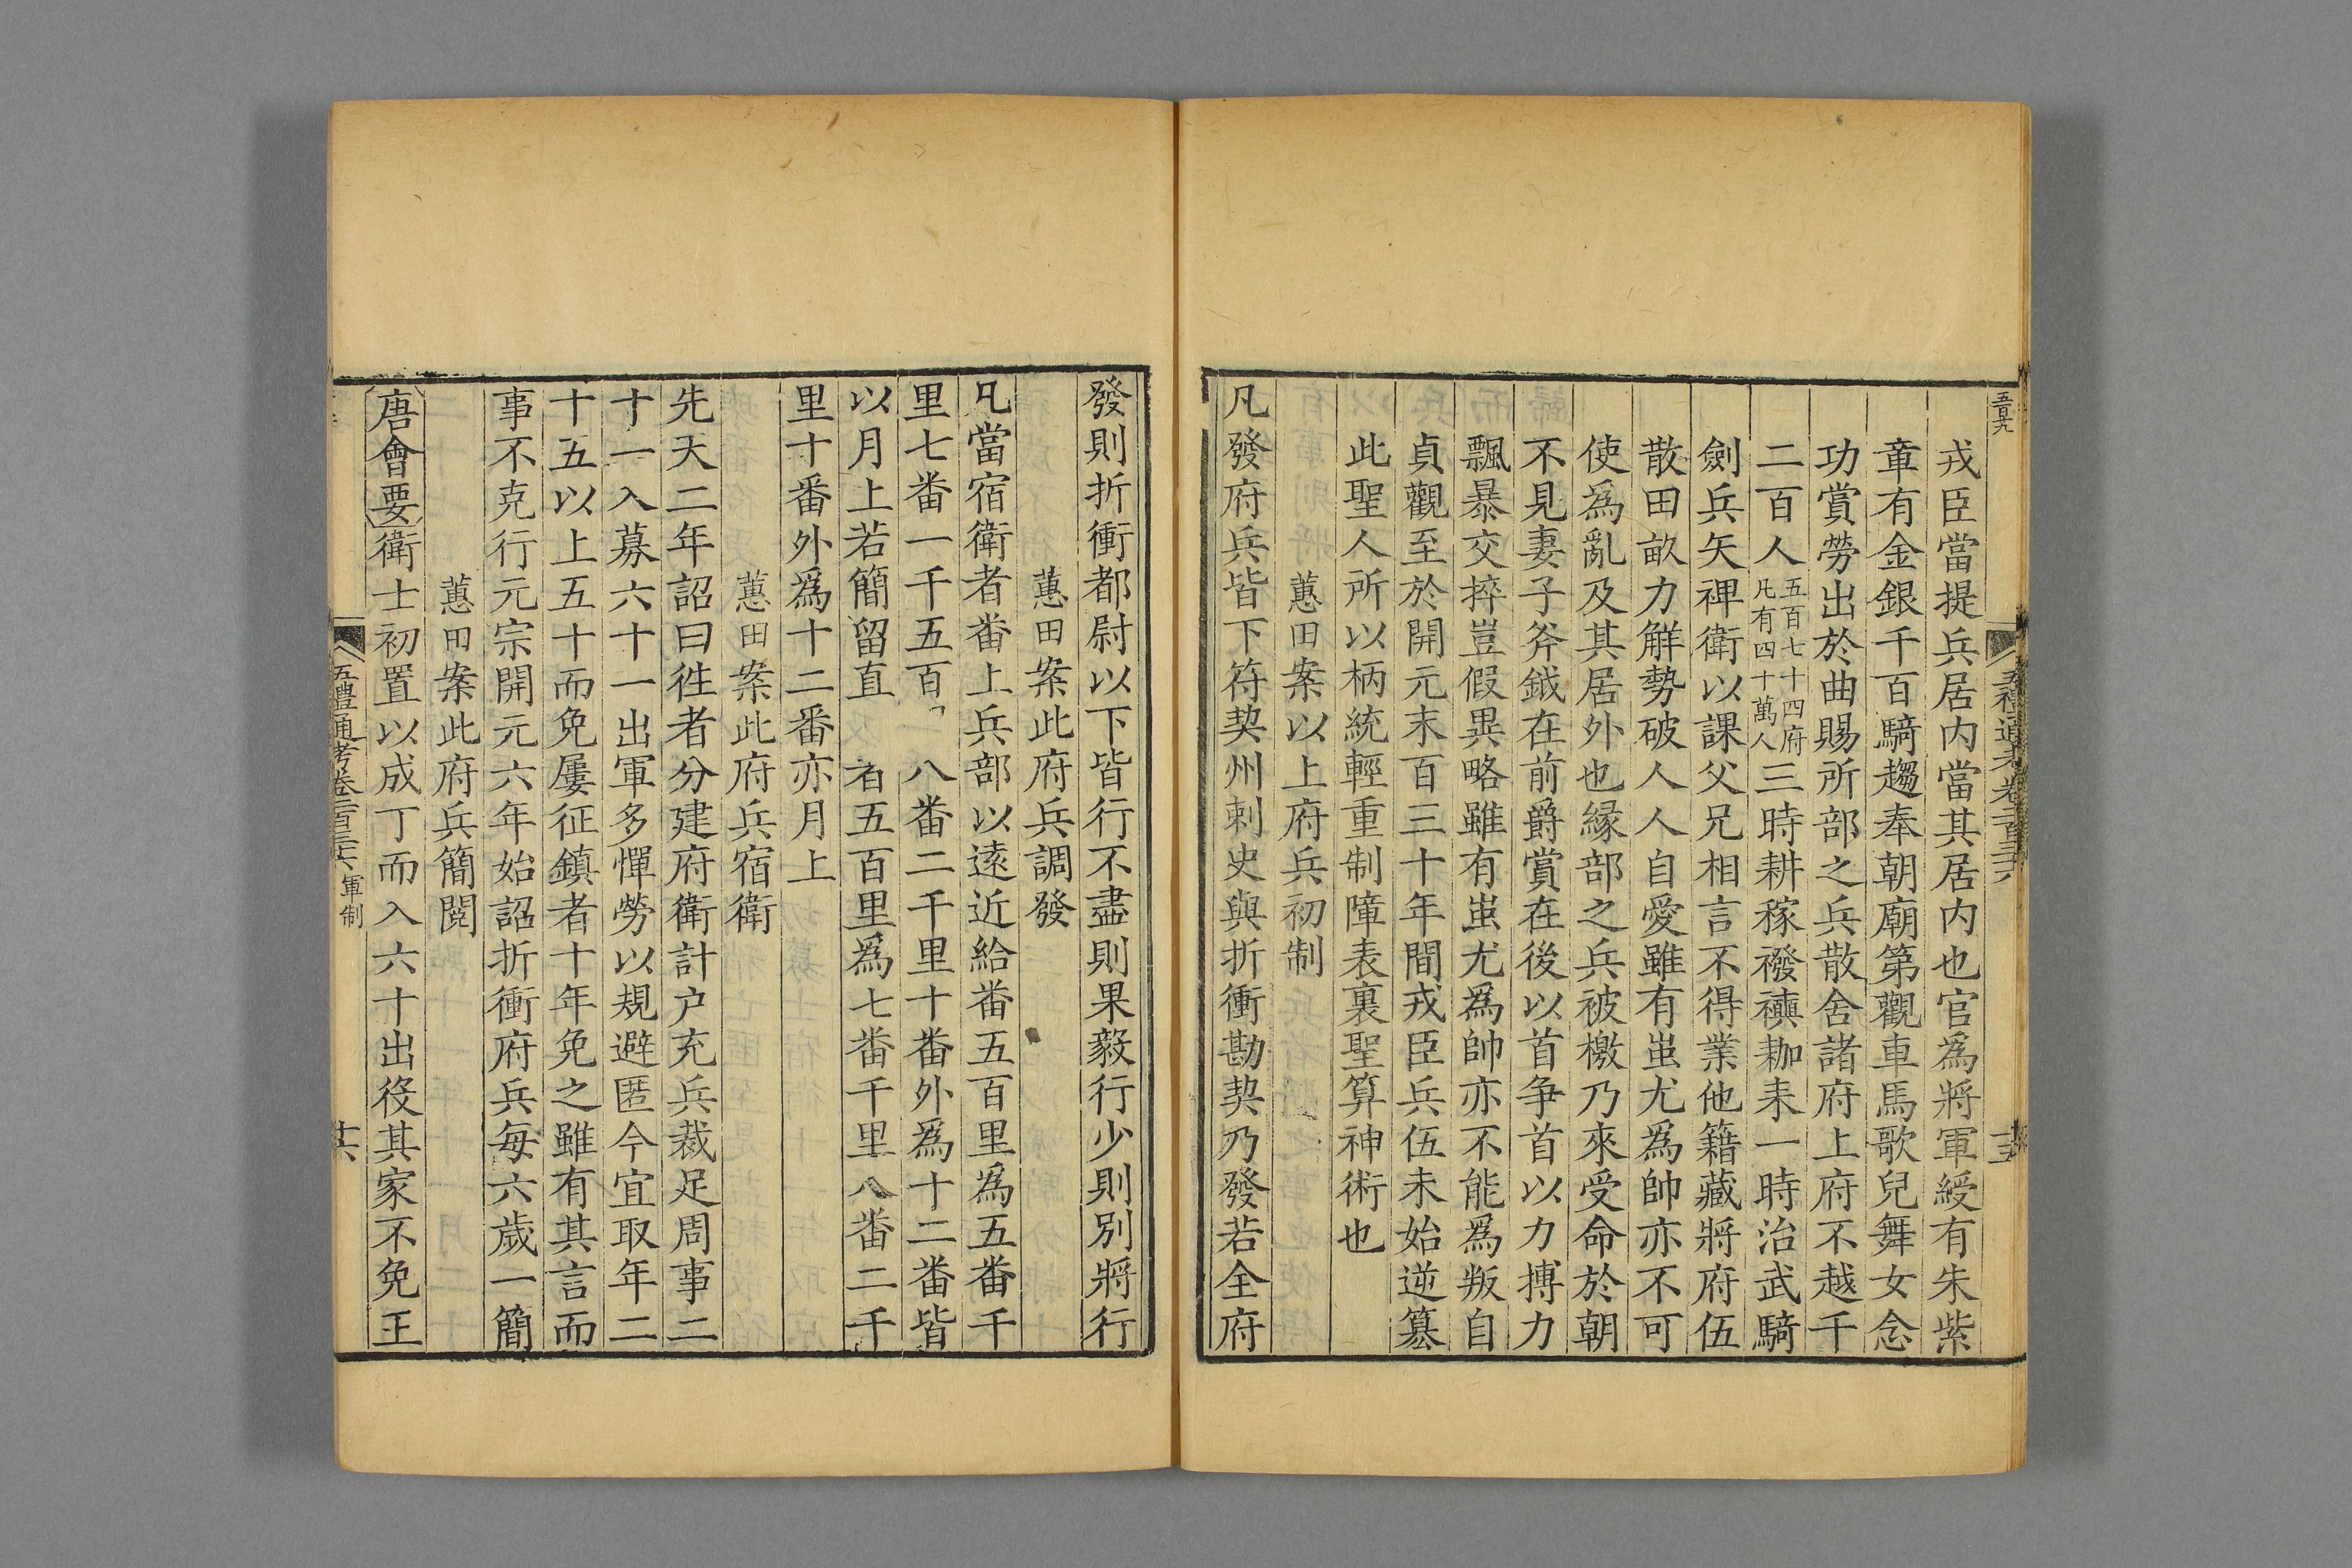 戎臣當提兵居内當其居内也官為將軍綬有朱紫
章有金銀千百騎趨奉朝廟第觀車馬歌兒舞女念
功賞勞出於曲賜所部之兵散舍諸府上府不越千
二百人五百七十四府凡有四十萬人三時耕稼襏襫耞耒一時治武騎
劍兵矢裨衛以課父兄相言不得業他籍藏將府伍
散田畝力解勢破人人自愛雖有蚩尤為帥亦不可
使為亂及其居外也縁部之兵被檄乃來受命於朝
不見妻子斧鉞在前爵賞在後以首争首以力搏力
飄暴交捽豈假異略雖有蚩尤為帥亦不能為叛自
貞觀至於開元末百三十年間戎臣兵伍未始逆篡
此聖人所以柄統輕重制障表裏聖算神術也
蕙田案以上府兵初制
凡發府兵皆下符契州刺史與折衝勘契乃發若全府
發則折衝都尉以下皆行不盡則果毅行少則别將行
蕙田案此府兵調發
凡當宿衛者番上兵部以遠近給番五百里為五番千
里七番一千五百 八番二千里十番外為十二番皆
以月上若簡留直 者五百里為七番千里八番二千
里十番外為十二番亦月上
蕙田案此府兵宿衛
先天二年詔曰往者分建府衛計户充兵裁足周事二
十一入募六十一出軍多憚勞以規避匿今宜取年二
十五以上五十而免屢征鎮者十年免之雖有其言而
事不克行元宗開元六年始詔折衝府兵每六歲一簡
蕙田案此府兵簡閲
唐會要衛士初置以成丁而入六十出役其家不免王
五禮通考卷二百三十六 軍制 十六